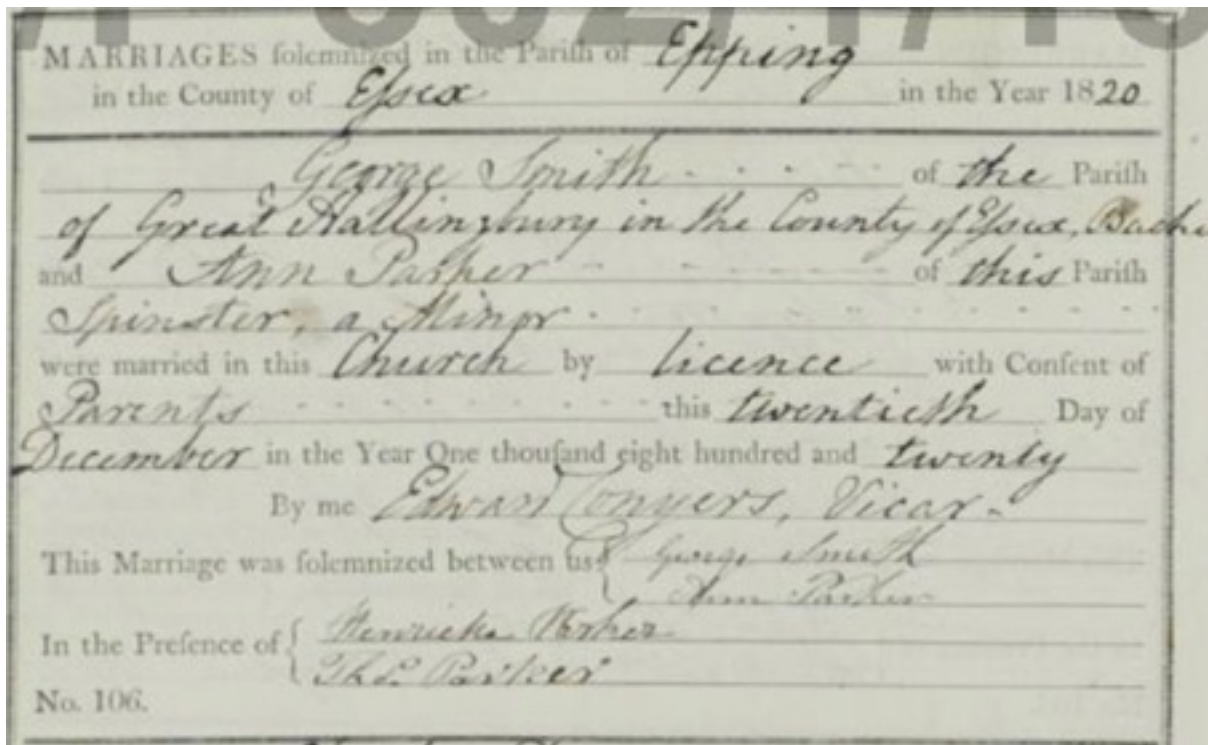 MARRIAGES ſolemnized in the Pariſh of Epping
in the County of Eſsex in the Year 1820
George Smith of the Pariſh
of Great Hallingbury in the County of Eſsex, Bache
and Ann Parker of this Pariſh
Spinster, a Minor
were married in this Church by licence with Conſent of
Parents this twentieth Day of
December in the Year One thouſand eight hundred and twenty
By me Edward Conyers, Vicar
This Marriage was ſolemnized between us { George Smith
Ann Parker
In the Preſence of { Parker
Thos. Parker
No. 106.